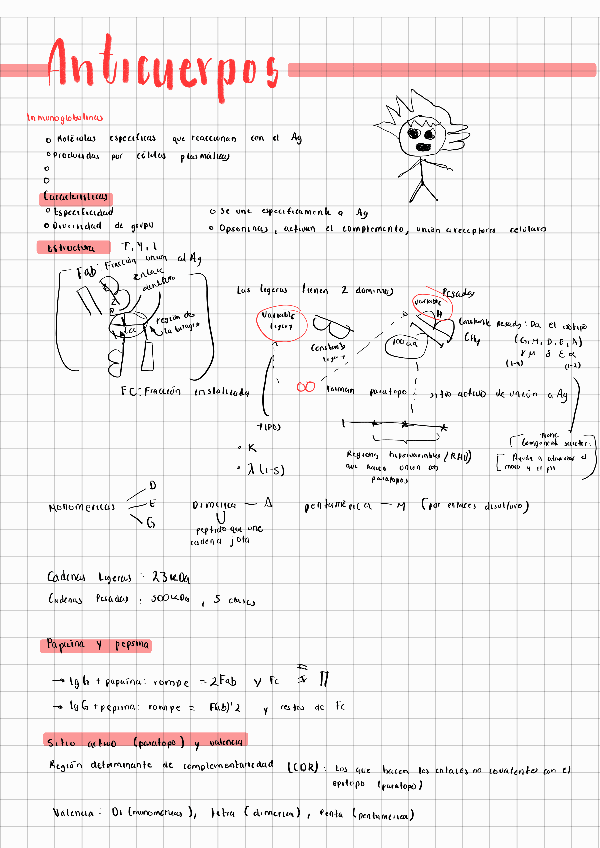 Anticuerpos
Inmunoglobulinas
Moléculas específicas que reaccionan con el Ag
Producidas por células plasmáticas
Características
Especificidad
Se une específicamente a Ag
Diversidad de grupo
Opsoninas, activan el complemento, unión a receptores celulares
Estructura
T, Y, L
Fab: Fracción unión al Ag
enlace
disulfuro
región de
la bisagra
Fc: Fracción cristalizada
Las ligeras tienen 2 dominios
Variable
ligera
Constante
ligera
tipos
K
λ (1-5)
Pesadas
Variable
Constante Pesada: Da el isotipo
CH
(G, M, D, E, A)
γ μ δ ε α
(1-4)
(1-2)
100 aa
forman paratopo
sitio activo de unión a Ag
Regiones hipervariables
que hacen unión
paratopos
Monoméricas
D
E
G
Dimérica — A
peptido que une
cadena J
pentamérica — M (por enlaces disulfuro)
Cadenas Ligeras: 23 kDa
Cadenas Pesadas: 500 kDa, 5 clases
Papaína y pepsina
→ IgG + papaína: rompe = 2Fab y Fc
→ IgG + pepsina: rompe = F(ab)'2 y restos de Fc
Sitio activo (paratopo) y valencia
Región determinante de complementariedad (CDR): Los que hacen los enlaces no covalentes con el
epitopo (paratopo)
Valencia: Di (monoméricas), tetra (dimérica), penta (pentamérica)